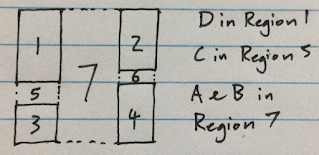 D in Region 1
1 2
C in Region 5
7
6
5
A & B in
3 4
Region 7